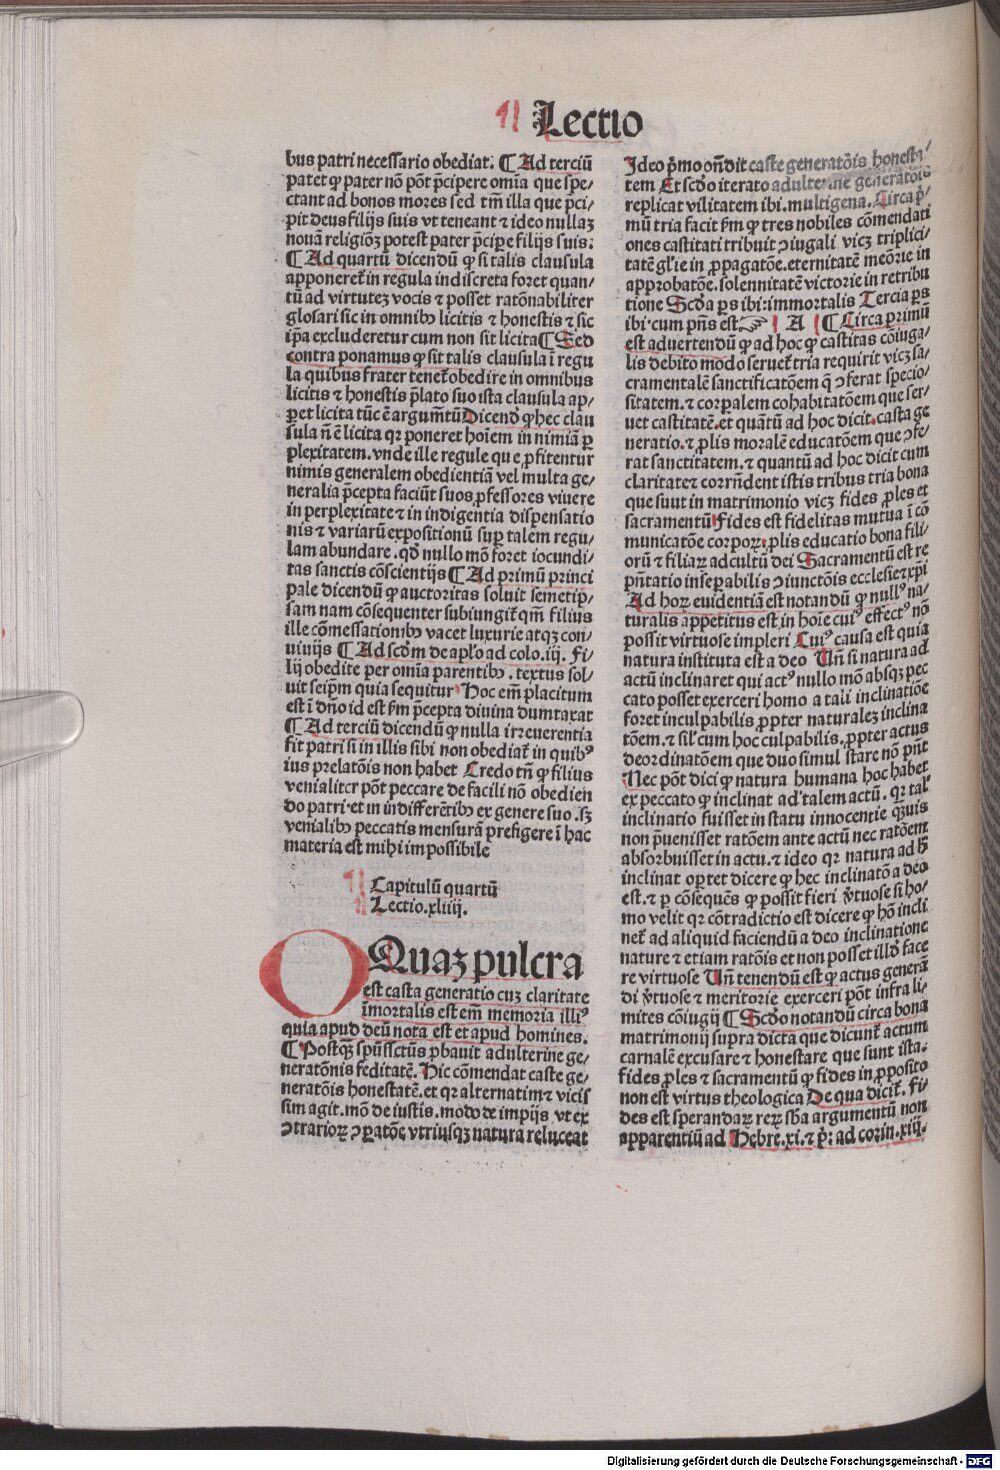 Lectio
bus patri necessario obediat. ¶ Ad terciū
patet ꝙ pater nō pōt p̄cipere om̄ia que spe/
ctant ad bonos mores sed tm̄ illa que p̄ci/
pit deus filijs suis vt teneant ⁊ ideo nullaꝫ
nouā religiōꝫ potest pater p̄cipere filijs suis.
¶ Ad quartū dicendū ꝙ si talis clausula
apponeret᷑ in regula indiscreta foret quan/
tū ad virtuteꝫ vocis ⁊ posset ratōnabiliter
glosari sic in omnibꝰ licitis ⁊ honestis ⁊ sic
ip̄a excluderetur cum non sit licita ¶ Sed
contra ponamus ꝙ sit talis clausula ī regu
la quibus frater tenet᷑ obedire in omnibus
licitis ⁊ honestis p̄lato suo ista clausula ap/
p̄et licita tūc ē argum̄tū Dicend̄ ꝙ hec clau
sula n̄ ē licita qꝛ poneret hoīem in nimiā ꝑ
plexitatem. vnde ille regule que ꝓfitentur
nimis generalem obedientiā vel multa ge/
neralia p̄cepta faciūt suos ꝓfessores viuere
in perplexitate ⁊ in indigentia dispensatio
nis ⁊ variarū expositionū suꝑ talem regu/
lam abundare. qd̄ nullo mō foret iocundi/
tas sanctis cōscientijs ¶ Ad primū princi
pale dicendū ꝙ auctoritas soluit semetip/
sam nam cōsequenter subiungit᷑ qm̄ filius
ille cōmessationibꝰ vacet luxurie atqꝫ con/
uiuijs ¶ Ad scd̄m de apl̄o ad colo.iij. Fi/
lij obedite per omīa parentibꝰ. textus sol/
uit seip̄m quia sequitur Hoc em̄ placitum
est ī dn̄o id est fm̄ p̄cepta diuina dumtaxat
¶ Ad terciū dicendū ꝙ nulla irreuerentia
fit patri si in illis sibi non obediat᷑ in quibꝰ
ius prelatōis non habet Credo tn̄ ꝙ filius
venialiter pōt peccare de facili nō obedien
do patri et in īdifferētibꝰ ex genere suo. sꝫ
venialibꝰ peccatis mensurā prefigere ī hac
materia est mihi impossibile
Capitulū quartū
Lectio.xliiij.
O Quaꝫ pulcra
est casta generatio cuꝫ claritate
īmortalis est em̄ memoria illiꝰ
quia apud deū nota est et apud homines.
¶ Postqꝫ spūssctūs ꝓbauit adulterine ge/
neratōnis feditatē. Hic cōmendat caste ge/
neratōis honestatē. et qꝛ alternatim ⁊ vicis
sim agit. mō de iustis. modo de impijs vt ex
ꝯtrarioꝝ ꝯparatōe vtriusqꝫ natura reluceat
Ideo p̄mo on̄dit caste generatōis honesta/
tem Et scd̄o iterato adulterine generatōis
replicat vilitatem ibi. multigena. Circa p̄/
mū tria facit fm̄ ꝙ tres nobiles cōmendati
ones castitati tribuit ꝯiugali vicꝫ triplici/
tatē gl̄ie in ꝓpagatōe. eternitatē meōrie in
approbatōe. solennitatē victorie in retribu
tione Scd̄a pꝰs ibi: immortalis Tercia ps
ibi. cum pn̄s est ☞ A ¶ Circa primū
est aduertendū ꝙ ad hoc ꝙ castitas cōiuga/
lis debito modo seruet᷑ tria requirit vicꝫ sa/
cramentalē sanctificatōem q̄ ꝯferat specio/
sitatem. ⁊ corpalem cohabitatōem que ser/
uet castitatē. et quātū ad hoc dicit. casta ge
neratio. ⁊ ꝓlis moralē educatōem que ꝯfe/
rat sanctitatem. ⁊ quantū ad hoc dicit cum
claritate ⁊ corrn̄dent istis tribus tria bona
que sunt in matrimonio vicꝫ fides ꝓles et
sacramentū Fides est fidelitas mutua ī cō
municatōe corpoꝝ. ꝓlis educatio bona fili/
orū ⁊ filiaꝝ ad cultū dei Sacramentū est re
pn̄tatio inseꝑabilis ꝯiunctōis ecclesie ⁊ xp̄i
Ad hoꝝ euidentiā est notandū ꝙ nullꝰ na/
turalis appetitus est in hoīe cuiꝰ effectꝰ nō
possit virtuose impleri Cuiꝰ causa est quia
natura instituta est a deo Un̄ si natura ad
actū inclinaret qui actꝰ nullo mō absqꝫ pec
cato posset exerceri homo a tali inclinatiōe
foret inculpabilis ꝓpter naturaleꝫ inclina
tōem. ⁊ sil᷑ cum hoc culpabilis. ꝓpter actus
deordinatōem que duo simul stare nō pn̄t
Nec pōt dici ꝙ natura humana hoc habet
ex peccato ꝙ inclinat ad talem actū. qꝛ tal̄
inclinatio fuisset in statu innocentie qꝫuis
non p̄uenisset ratōem ante actū nec ratōem
absorbuisset in actu. ⁊ ideo qꝛ natura ad h̄
inclinat oportet dicere ꝙ hec inclinatō a deo
est. ⁊ ꝑ cōsequēs ꝙ possit fieri v̄tuose si ho/
mo velit qꝛ cōtradictio est dicere ꝙ hō incli
net᷑ ad aliquid faciendū a deo inclinatione
nature ⁊ etiam ratōis et non posset illd̄ face
re virtuose Un̄ tenendū est ꝙ actus generā
di v̄tuose ⁊ meritorie exerceri pōt infra li/
mites cōiugij ¶ Scd̄o notandū circa bona
matrimonij supra dicta que dicunt᷑ actum
carnalē excusare ⁊ honestare que sunt ista.
fides ꝓles ⁊ sacramentū ꝙ fides in ꝓposito
non est virtus theologica De qua dicit᷑. Fi/
des est sperandaꝝ reꝝ sb̄a argumentū non
apparentiū ad Hebre.xi. ⁊ p̄: ad corin.xiij.
Digitalisierung gefördert durch die Deutsche Forschungsgemeinschaft - DFG